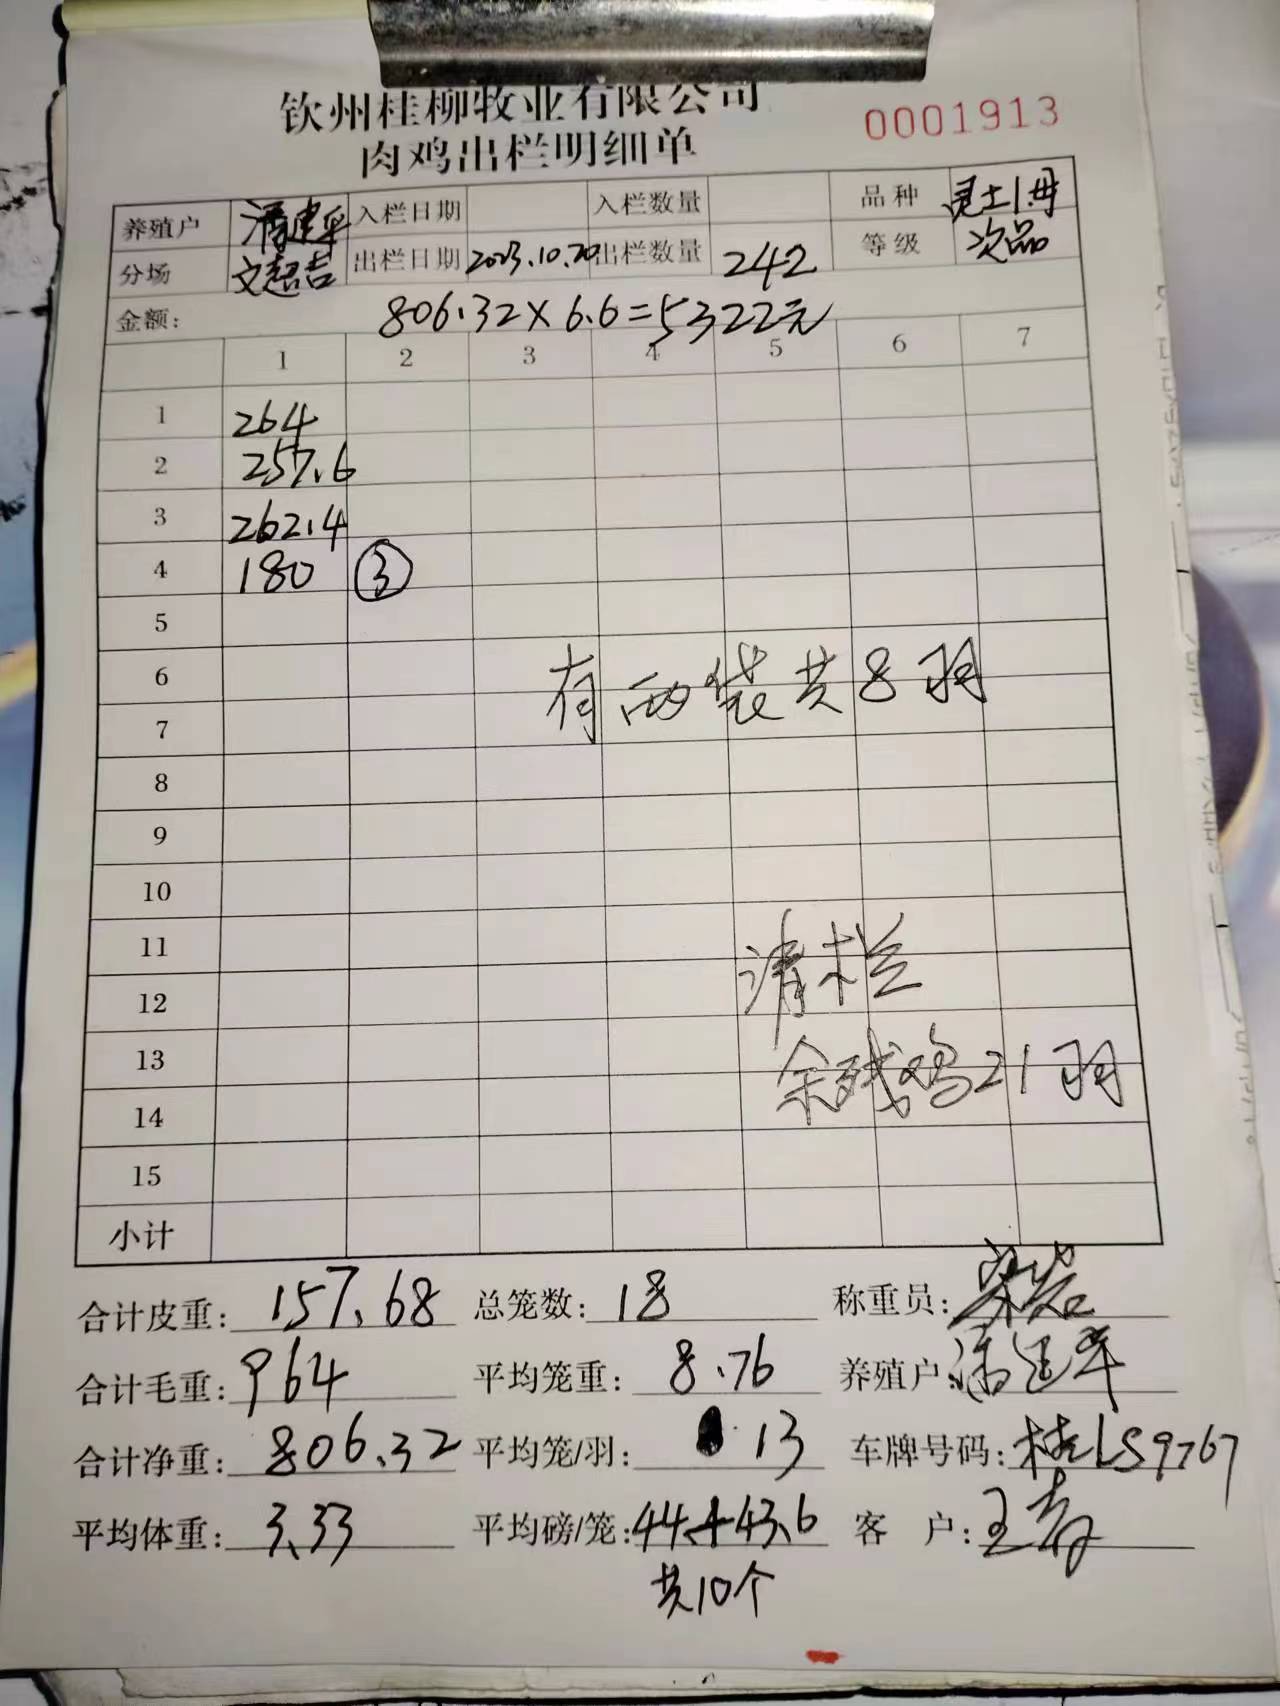 钦州桂柳牧业有限公司
肉鸡出栏明细单
0001913
养殖户 潘建平 入栏日期 入栏数量 品种 灵土1母
分场 文超吉 出栏日期 2023.10.20 出栏数量 242 等级 次品
金额: 806.32×6.6=5322元
1 2 3 4 5 6 7
1 264
2 257.6
3 262.4
4 180 ③
5
6
有两袋共8羽
7
8
9
10
11
12
清栏
13
余残鸡21羽
14
15
小计
合计皮重: 157.68 总笼数: 18 称重员:
合计毛重: 964 平均笼重: 8.76 养殖户: 潘建平
合计净重: 806.32 平均笼/羽: 13 车牌号码: 桂LS9767
平均体重: 3.33 平均磅/笼: 44.4 43.6 客 户: 王
共10个